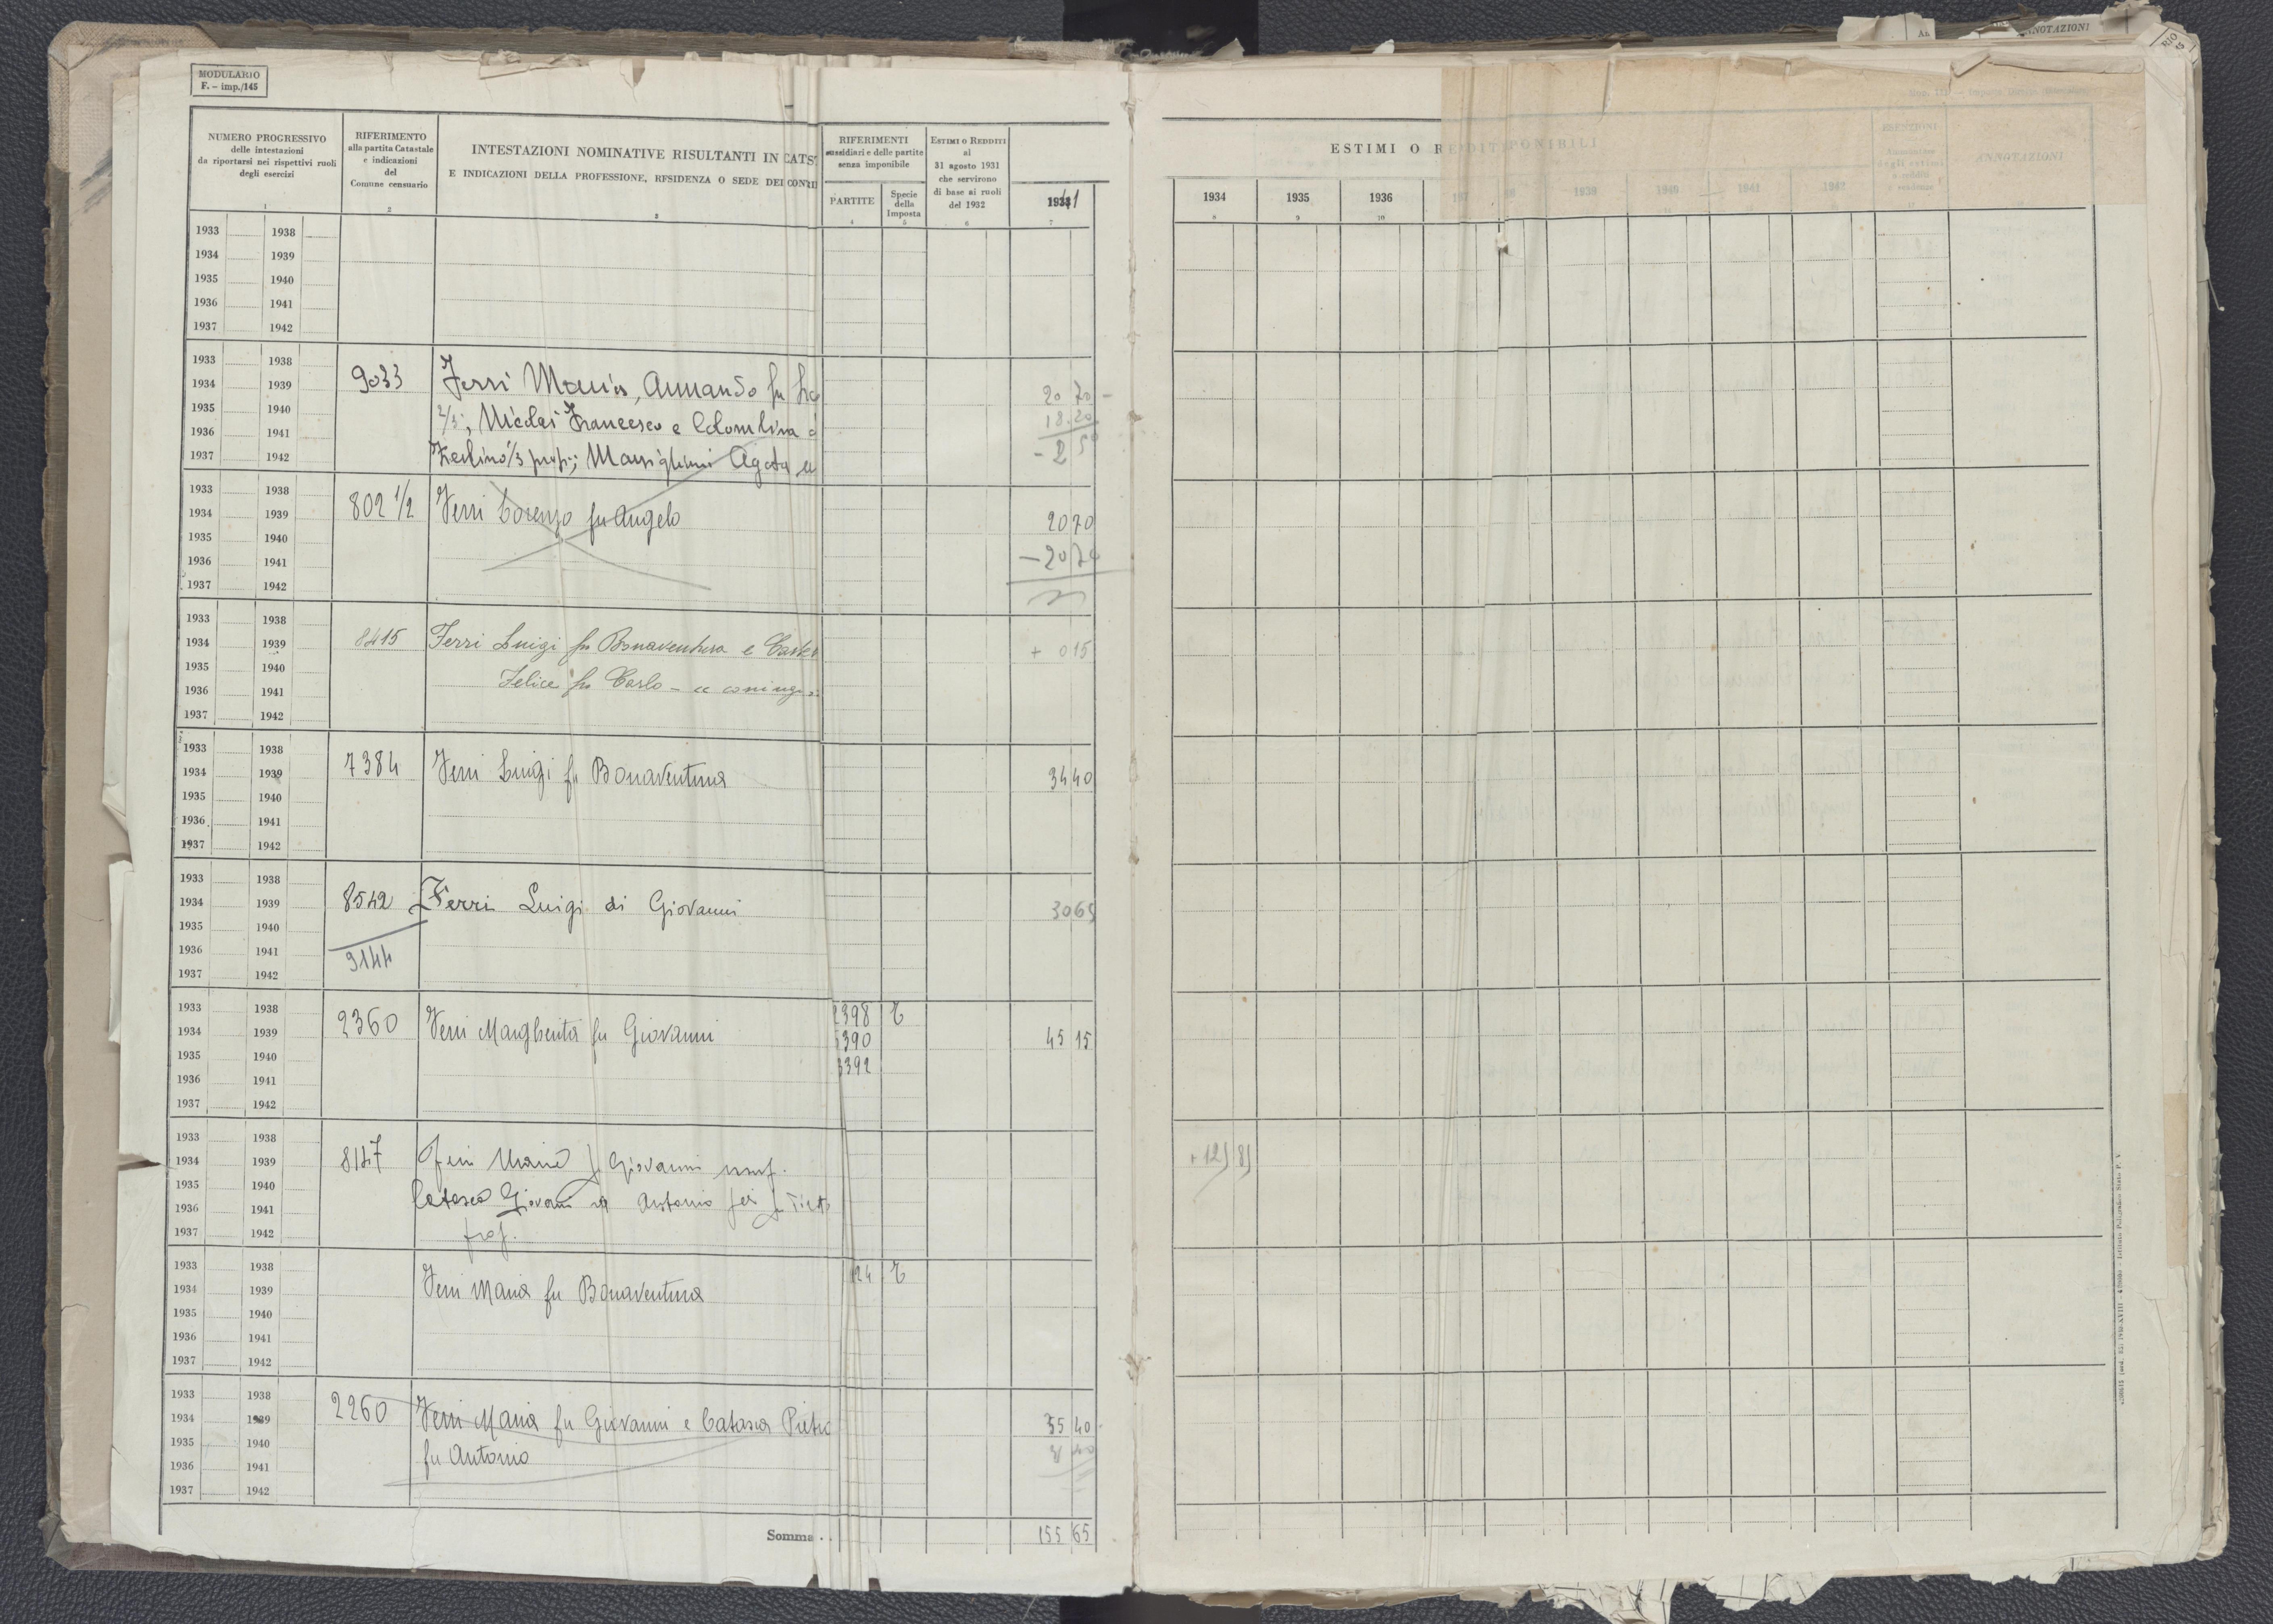 MODULARIO
F. - imp./145
NUMERO PROGRESSIVO
delle intestazioni
da riportarsi nei rispettivi ruoli
degli esercizi
1
RIFERIMENTO
alla partita Catastale
e indicazioni
del
Comune censuario
2
INTESTAZIONI NOMINATIVE RISULTANTI IN CATS
E INDICAZIONI DELLA PROFESSIONE, RESIDENZA O SEDE DEI
3
RIFERIMENTI
sussidiari e delle partite
senza imponibile
PARTITE
4
Specie
della
Imposta
5
ESTIMI O REDDITI
al
31 agosto 1931
che servirono
di base ai ruoli
del 1932
6
7
ESTIMI O REDDITI
PONIBILI
1934
8
1935
9
1936
10
1938
1940
1941
1942
ESENZIONI
degli estimi
o redditi
ANNOTAZIONI
ANNOTAZIONI
1933 1938
1934 1939
1935 1940
1936 1941
1937 1942
1933 1938
1934 1939
1935 1940
1936 1941
1937 1942
9033
Ferri Maria, Armando fu
2/3; Nicolai Francesco e Colombina
1/3 prop; Agata
20 70 -
18.20
- 2 50
1933 1938
1934 1939
1935 1940
1936 1941
1937 1942
802 1/2
Ferri Lorenzo fu Angelo
20 70
- 20 70
1933 1938
1934 1939
1935 1940
1936 1941
1937 1942
8415
Ferri Luigi fu Bonaventura e
Felice fu Carlo - coniugi
+ 0 15
1933 1938
1934 1939
1935 1940
1936 1941
1937 1942
7384
Ferri Luigi fu Bonaventura
34 40
1933 1938
1934 1939
1935 1940
1936 1941
1937 1942
8542
Ferri Luigi di Giovanni
30 65
9144
1933 1938
1934 1939
1935 1940
1936 1941
1937 1942
2360
Ferri Margherita fu Giovanni
2398
390
3392
45 15
1933 1938
1934 1939
1935 1940
1936 1941
1937 1942
8147
Ferri Maria fu Giovanni usuf.
Catasca Giovanni Antonio
prop.
1933 1938
1934 1939
1935 1940
1936 1941
1937 1942
Ferri Maria fu Bonaventura
124
1933 1938
1934 1939
1935 1940
1936 1941
1937 1942
2260
Ferri Maria fu Giovanni e Catasca Pietro
fu Antonio
55 40
Somma . .
155 65